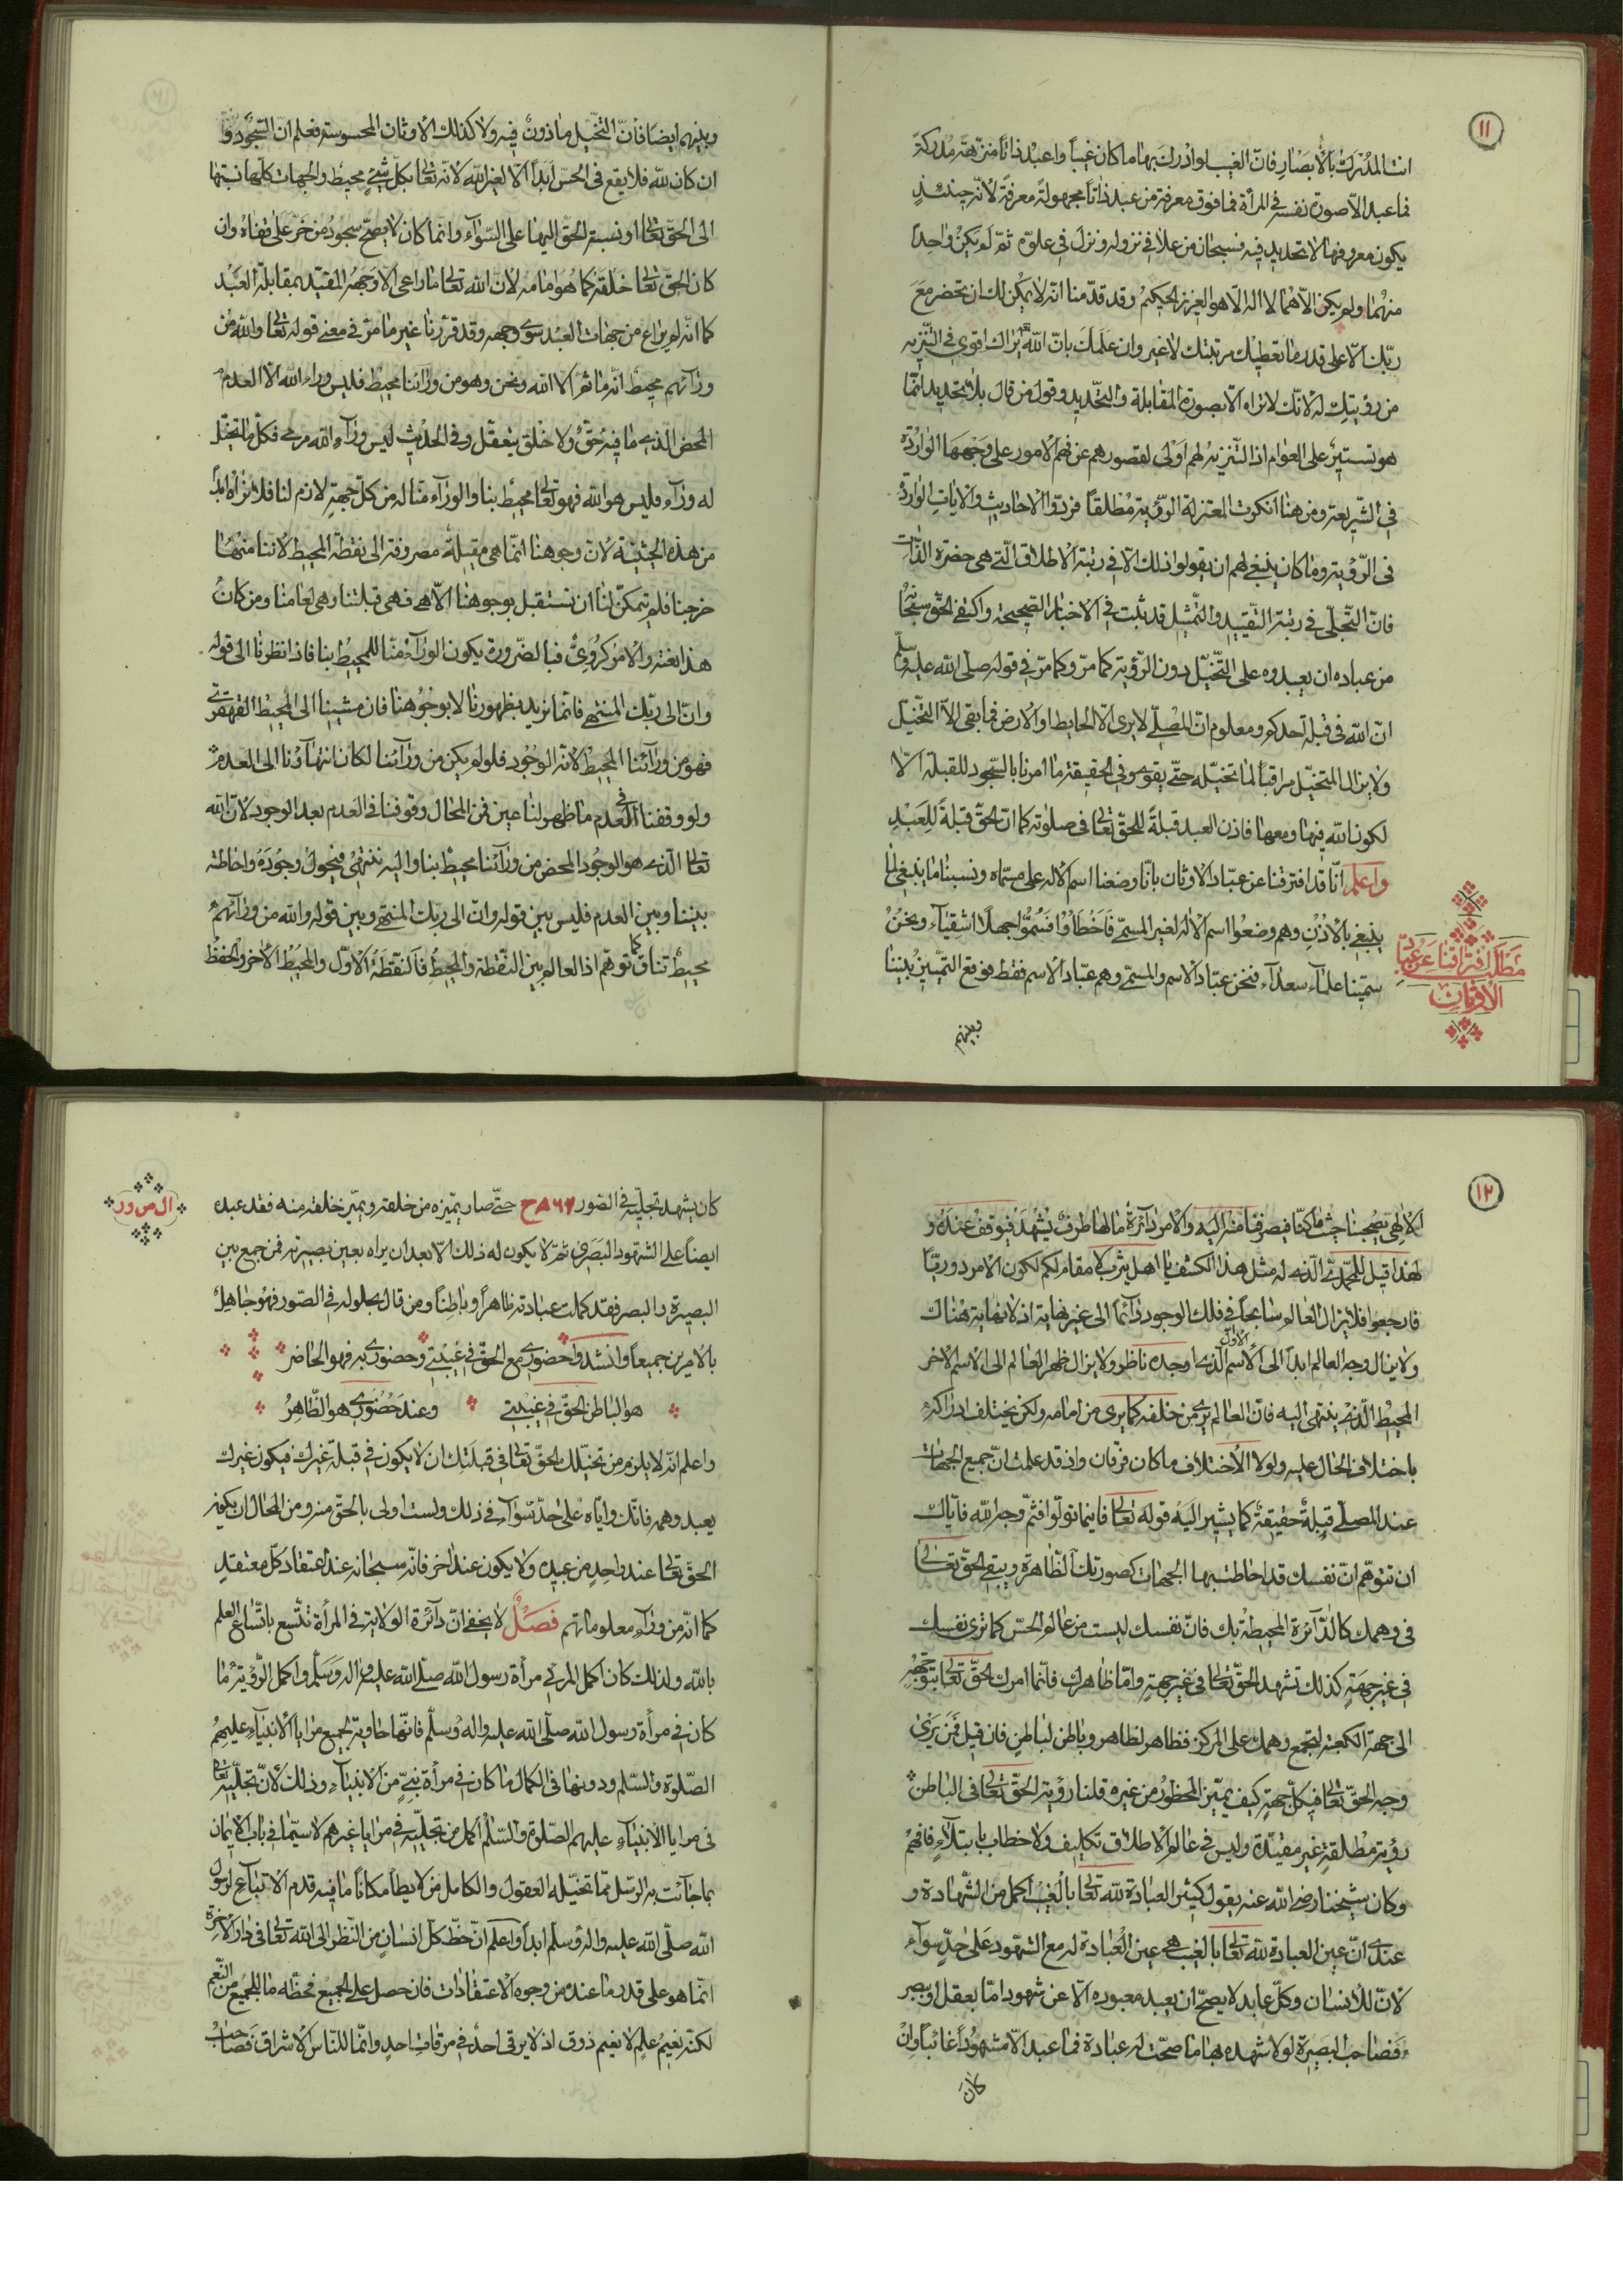 ١١
انت المدرك بالأبصار فانّ الغيب لو ادرك بها ما كان غيباً واعبد ذاتاً منزهة مدركة
فما عبد الّا صورة نفسه في المرأة فما فوق معرفة من عبد ذاتاً مجهولة معرفة لانّه حينئذٍ
يكون معروفها لا تحديد فيه فسبحان من علا في نزوله ونزل في علوّه ثمّ لم يكن واحداً
منهما ولم يكن الّا هما لا اله الّا هو العزيز الحكيم وقد قدّمنا انّه لا يمكن لك ان تحضر مع
ربّك الّا على قدر ما تعطيك مرتبتك لا غير وان علمك بانّ الله يراك اقوى في التّنزيه
من رؤيتك له لانّك لا تراه الّا بصورة المقابلة والتّحديد وقول من قال بلا تحديد انّما
هو تستير على العوام اذ التّنزيه لهم اولى لقصورهم عن فهم الامور على وجهها الواردة
في الشّريعة ومن هنا انكرت المعتزلة الرّؤية مطلقاً فردّوا الاحاديث والآيات الواردة
في الرّؤية وما كان ينبغي لهم ان يقولوا ذلك الّا في رتبة الاطلاق الّتي هي حضرة الذّات
فانّ التّجلّي في رتبة التّقييد والتّمثيل قد ثبت في الاخبار الصّحيحة واكتفى الحقّ سبحانه
من عباده ان يعبدوه على التّخيّل دون الرّؤية كما مرّ وكما مرّ في قوله صلّى الله عليه وسلّم
انّ الله في قبلة احدكم ومعلوم انّ المصلّي لا يرى الّا الحايط او الارض فما بقى الّا التّخيّل
ولا يزال المتخيّل مراقباً لما تخيّله حتّى يقوى وفي الحقيقة ما امرنا بالسّجود للقبلة الّا
لكون الله فيها ومعها فاذن العبد قبلةً للحقّ تعالى في صلوته كما انّ الحقّ قبلةً للعبد
واعلم انّا قد افترقنا عن عبّاد الاوثان بانّا وضعنا اسم الاله على مسمّاه ونسبنا ما ينبغي لما
ينبغي بالاذن وهم وضعوا اسم الاله لغير المسمّى فاخطأوا فسمّوا جهلاً اشقياء ونحن
سمّينا علمآء سعدآء فنحن عبّاد الاسم والمسمّى وهم عبّاد الاسم فقط فوقع التّمييز بيننا
مطلب افتراقنا عن عبّاد
الاوثان
وبينهم
وبينهم ايضاً فانّ التّخيّل ماذون فيه ولا كذلك الاوثان المحسوسة فعلم ان السّجود
ان كان لله فلا يقع في الحسّ ابداً الّا لغير الله لانّه تعالى بكلّ شيء محيط والجهات كلّها نسبتها
الى الحقّ تعالى او نسبة الحقّ اليها على السّوآء وانّما كان لا يصحّ سجود من خرّ على قفاه وان
كان الحقّ تعالى خلفه كما هو امامه لانّ الله تعالى ما راعى الّا وجهه المقيّد بمقابلة العبد
كما انّه لم يراع من جهات العبد سوى وجهه وقد قرّرنا غير ما مرّ في معنى قوله تعالى والله من
ورآئهم محيط انّه ما ثمّ الّا الله ونحن وهو من ورآئنا محيط فليس وراء الله الّا العدم
المحض الّذي ما فيه حقّ ولا خلق يتعقّل وفي الحديث ليس ورآء الله مرمى فكلّ ما تتخيّل
له ورآء فليس هو الله فهو تعالى محيط بنا والورآء منّا له من كلّ جهة لازم لنا فلا نراه ابداً
من هذه الحيثيّة لانّ وجوهنا انّما هي مقبلة مصروفة الى نقطة المحيط لاننا منها
خرجنا فلم يتمكّن لنا ان نستقبل بوجوهنا الّا هي فهي قبلتنا وهي امامنا ومن كان
هذا نعته والامر كرويّ فبالضّرورة يكون الورآء منّا للمحيط بنا فاذا نظرنا الى قوله
وانّ الى ربّك المنتهى فانّما نريد بظهورنا لا بوجوهنا فان مشينا الى المحيط القهقرى
فهو من ورآئنا المحيط لانّه الوجود فلو لم يكن من ورآئنا لكان انتهآؤنا الى العدم
ولو وقفنا في العدم ما ظهر لنا عين فمن المحال وقوفنا في العدم بعد الوجود لانّ الله
تعالى الّذي هو الوجود المحض من ورآئنا محيط بنا واليه ننتهي فيحول وجوده واحاطته
بيننا وبين العدم فليس بين قوله وانّ الى ربّك المنتهى وبين قوله والله من ورآئهم
محيط تناف كما توهّم اذ العالم بين النّقطة والمحيط فالنّقطة الاوّل والمحيط الآخر والحفظ
١٢
الالهي يصحبنا حيث ما كنّا فيصرفنا منه اليه والامر دآئرة ما لها طرف يشهد فيوقف عنده و
لهذا قيل للمحمّديّ الّذي له مثل هذا الكشف يا اهل يثرب لا مقام لكم لكون الامر دوريّاً
فارجعوا فلا يزال العالم سابحاً في فلك الوجود دآئماً الى غير نهاية اذ لا نهاية هناك
ولا يزال وجه العالم ابداً الى الاسم الاوّل الّذي اوجده ناظر ولا يزال ظهر العالم الى الاسم الآخر
المحيط الّذي ينتهي اليه فانّ العالم يرى من خلفه كما يرى من امامه ولكن يختلف ادراكه
باختلاف الحال عليه ولولا الاختلاف ما كان فرقان واذ قد علمت انّ جميع الجهات
عند المصلّي قبلة حقيقة كما يشير اليه قوله تعالى فاينما تولّوا فثمّ وجه الله فايّاك
ان تتوهّم انّ نفسك قد احاطت بها الجهات كصورتك الظّاهرة ويبقى الحقّ تعالى
في وهمك كالدّآئرة المحيطة بك فانّ نفسك ليست من عالم الحسّ كما ترى نفسك
في غير جهة كذلك تشهد الحقّ تعالى في غير جهة وامّا ظاهرك فانّما امرك الحقّ تعالى بتوجّهه
الى جهة الكعبة لتجمع وهمك على المركز فظاهر لظاهر وباطن لباطن فان قيل فمن يرى
وجه الحقّ تعالى في كلّ جهة كيف يميّز المحظور من غيره قلنا رؤية الحقّ تعالى في الباطن
رؤية مطلقة غير مقيّدة وليس في عالم الاطلاق تكليف ولا خطاب بابتلآء فافهم
وكان شيخنا رضي الله عنه يقول كثير العبادة لله تعالى بالغيب اكمل من الشّهادة و
عندي انّ عين العبادة لله تعالى بالغيب هي عين العبادة له مع الشّهود على حدّ سوآء
لانّ للانسان وكلّ عابد لا يصحّ ان يعبد معبوده الّا عن شهود امّا بعقل او ببصر
فصاحب البصيرة لولا شهده بها ما صحّت له عبادة فما عبد الّا مشهوداً غائباً وان
كان
كان يشهد تجلّيه في الصّور ٨٦٧ ح حتّى صار يميّزه من خلقه ويميّز خلقه منه فقد عبده
ال ص ور
ايضاً على الشّهود البصري ثمّ لا يكون له ذلك الّا بعد ان يراه بعين بصيرته فمن جمع بين
البصيرة والبصر فقد كملت عبادته ظاهراً وباطناً ومن قال بحلوله في الصّور فهو جاهل
بالامرين جميعاً وانشدوا حضوري مع الحقّ في غيبتي وحضوري به فهو الحاضر
هو الباطن الحقّ في غيبتي وعند حضوري هو الظّاهر
واعلم انّه لا يلزم من تخيّلك الحقّ تعالى في قبلتك ان لا يكون في قبلة غيرك فيكون غيرك
يعبد وهمه فانّك وايّاه على حدّ سوآء في ذلك ولست اولى بالحقّ منه ومن المحال ان يكون
الحقّ تعالى عند واحد من عبيده ولا يكون عند اخر فانّه سبحانه عند اعتقاد كلّ معتقد
كما انّه من ورآء معلوماتهم فصل لا يخفى انّ دآئرة الولاية في المرأة تتّسع باتّساع العلم
بالله ولذلك كان اكمل المرئي في مرأة رسول الله صلّى الله عليه وعلى اله وسلّم واكمل الرّؤية ما
كان في مرأة رسول الله صلّى الله عليه واله وسلّم فانّها حاوية لجميع مرايا الانبيآء عليهم
الصّلوة والسّلم ودونها في الكمال ما كان في مرأة نبيّ من الانبيآء وذلك لانّ تجلّيه تعالى
في مرايا الانبيآء عليهم الصّلوة والسّلم اكمل من تجلّيه في مرايا غيرهم لا سيّما في باب الايمان
بما جآءت به الرّسل ممّا تحيله العقول والكامل من لا يطأ مكاناً ما فيه قدم الاتباع لرسول
الله صلّى الله عليه واله وسلّم ابداً واعلم انّ حظّ كلّ انسان من النّظر الى الله تعالى في دار الآخرة
انّما هو على قدر ما عنده من وجوه الاعتقادات فان حصل على الجميع فحظّه ما للجميع من النّعيم
لكنّه نعيم علم لا نعيم ذوق اذ لا يرقى احد في مرقات احد وانّما للنّاس الاشراق فصاحب